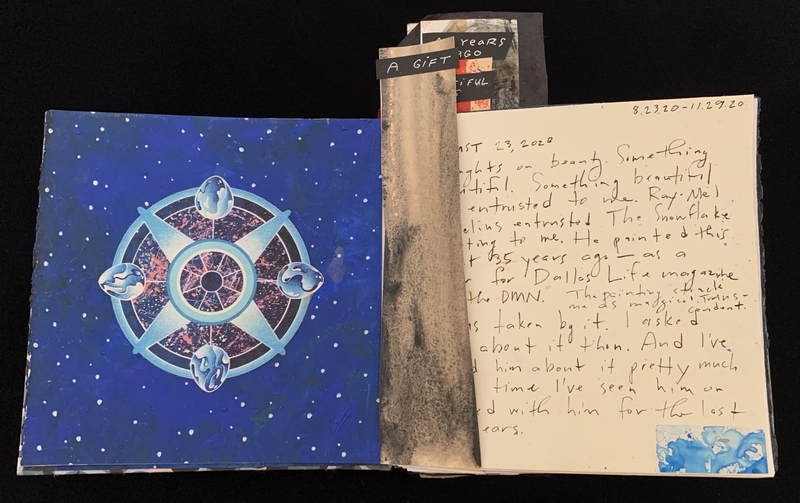 YEARS
AGO
A GIFT
TIFUL
8.23.20-11.29.20
UST 23, 2020
ghts on beauty. Something
utiful. Something beautiful
entrusted to me. Ray-Mel
elius entrusted The Snowflake
ting to me. He painted this
t 35 years ago—as a
r for Dallas Life magazine
the DMN. The painting struck
me as magical. Trans-
cendent.
s taken by it. I asked
about it then. And I've
d him about it pretty much
time I've seen him or
ed with him for the last
ears.